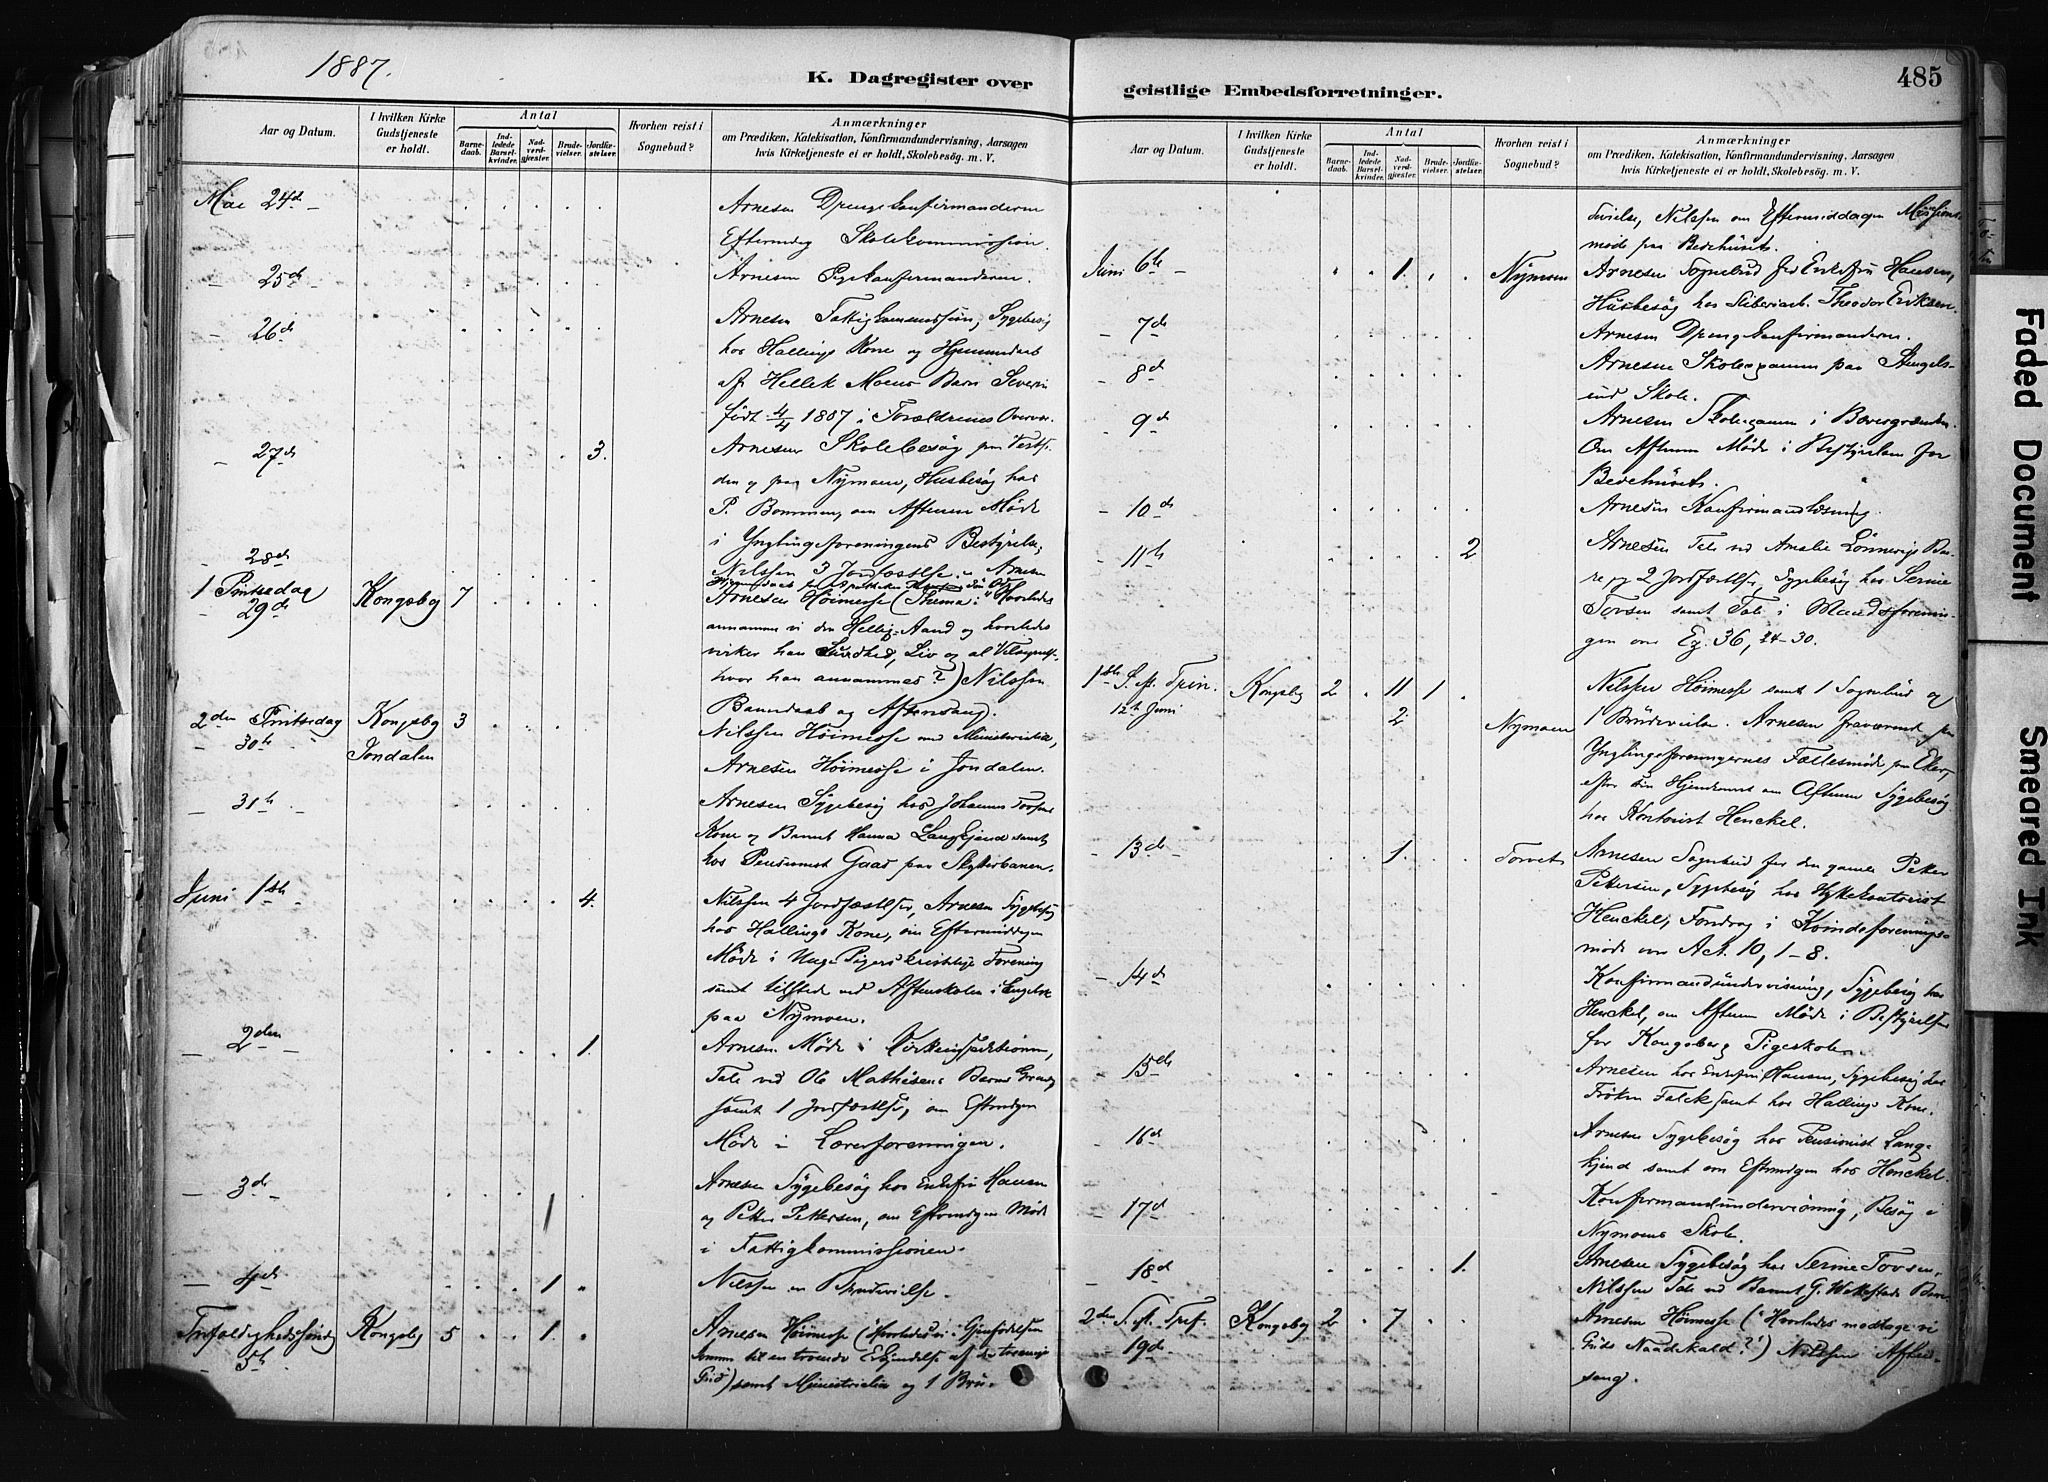 1887.
K. Dagregister over
Aar og Datum.
I hvilken Kirke Gudstjeneste er holdt.
Antal
Barnedaab.
Indledede Barselkvinder.
Nadverdgjester.
Brudevielser.
Jordfæstelser.
Hvorhen reist i Sognebud?
Anmærkninger
om Prædiken, Katekisation, Konfirmandundervisning, Aarsagen
hvis Kirketjeneste ei er holdt, Skolebesøg. m. V.
Mai 24de
Arnesen Drengekonfirmanderne
Eftermdg Skolekommission.
25de
Arnesen Pigekonfirmanderne.
26de
Arnesen Fattigkommission, Sygebesøg
hos Hallings Kone og Hjemmedaab
af Hellek Moens Barn Severin
født 4/4 1887 i Forældrenes Overvær.
27de 3.
Arnesen Skolebesøg paa Vestsi-
den og paa Nymoen, Husbesøg hos
P. Bommen, om Aftenen Møde
i Ynglingeforeningens Bestyrelse,
28de
Nilssen 3 Jordfæstelse. Arnesen
1 Pintsedag Kongsbg 7
29de
Arnesen Høimesse (Thema: Hvorledes
annamme vi den Hellig-Aand og hvorledes
virker han Liv og al
hvor han annammes?) Nilssen
Barnedaab og Aftensang.
2den Pintsedag Kongsbg 3
30te Jondalen
Nilssen Høimesse med Ministerialia,
Arnesen Høimesse i Jondalen.
31te
Arnesen Sygebesøg hos Johannes
Kone og Barnet Hanna Langkjend samt
hos Pensionist Gaas paa Skytterbanen.
Juni 1ste 4.
Nilssen 4 Jordfæstelser, Arnesen Sygebesøg
hos Hallings Kone, om Eftermiddagen
Møde i Unge Pigers kristelige Forening
samt tilstede ved Aftenskolen i Engelsk
paa Nymoen.
2den 1.
Arnesen Møde i Kirkeinspektionen,
Tale ved Ole Mathisens Barns Grav
samt 1 Jordfæstelse, om Eftmdgen
Møde i Lærerforeningen.
3de 1
Arnesen Sygebesøg hos Enkefru Hansen
og Petter Pettersen, om Eftermdgen Møde
i Fattigkommissionen.
4de 1
Nilssen en Brudevielse.
Trefoldighedssøndg Kongsbg 5 1.
5te
Arnesen Høimesse (Hvorledes vi i Gjenfødelsen
komme til en troende Erkjendelse af den treenige
Gud) samt Ministerialia og 1 Bru-
geistlige Embedsforretninger.
485
Aar og Datum.
I hvilken Kirke Gudstjeneste er holdt.
Antal
Barnedaab.
Indledede Barselkvinder.
Nadverdgjester.
Brudevielser.
Jordfæstelser.
Hvorhen reist i Sognebud?
Anmærkninger
om Prædiken, Katekisation, Konfirmandundervisning, Aarsagen
hvis Kirketjeneste ei er holdt, Skolebesøg. m. V.
devielse, Nilssen om Eftermiddagen Missions-
møde paa Bedehuset.
Juni 6te 1. Nymoen
Arnesen Sognebud for Enkefru Hansen,
Husbesøg hos Theodor Eriksen.
7de
Arnesen Drengekonfirmanderne.
8de
Arnesen Skolexamen paa Stengels-
rud Skole.
9de
Arnesen Skolexamen i
Om Aftenen Møde i Bestyrelsen for
Bedehuset.
10de
Arnesen Konfirmandlæsning.
11te 2
Arnesen Tale ved Amalie Baa-
re og 2 Jordfæstelser, Sygebesøg hos Serine
Tovsen samt Tale i Mandsforenin-
gen over Ez. 36, 24-30.
1ste S. eft. Trin. Kongsbg 2 11 1
12te Juni 2 Nymoen
Nilssen Høimesse samt 1 Sognebud og
1 Brudevielse. Arnesen fraværende paa
Ynglingeforeningernes Fællesmøde paa Eker,
efter sin Hjemkomst om Aftenen Sygebesøg
hos Kontorist Henckel.
13de 1. Torvet
Arnesen Sognebud for den gamle Petter
Pettersen, Sygebesøg hos
Henckel, Foredrag i Kvindeforenings-
møde over Act. 10, 1-8.
14de
Konfirmandundervisning, Sygebesøg hos
Henckel, om Aftenen Møde i Bestyrelsen
for Kongsberg Pigeskole.
15de
Arnesen hos Enkefru Hansen, Sygebesøg hos
Frøken Falck samt hos Hallings Kone.
16de
Arnesen Sygebesøg hos Pensionist Lang-
kjend samt om Eftermdgen hos Henckel.
17de
Konfirmandundervisning, Besøg i
Nymoens Skole.
18de 1.
Arnesen Sygebesøg hos Serine Tovsen,
Nilssen Tale ved Barnet G. Baare.
2den S. eft. Tref. Kongsbg 2 7
19de
Arnesen Høimesse ("Hvorledes modtage vi
Guds Naadekald?") Nilssen Aften-
sang.
Faded Document
Smeared Ink